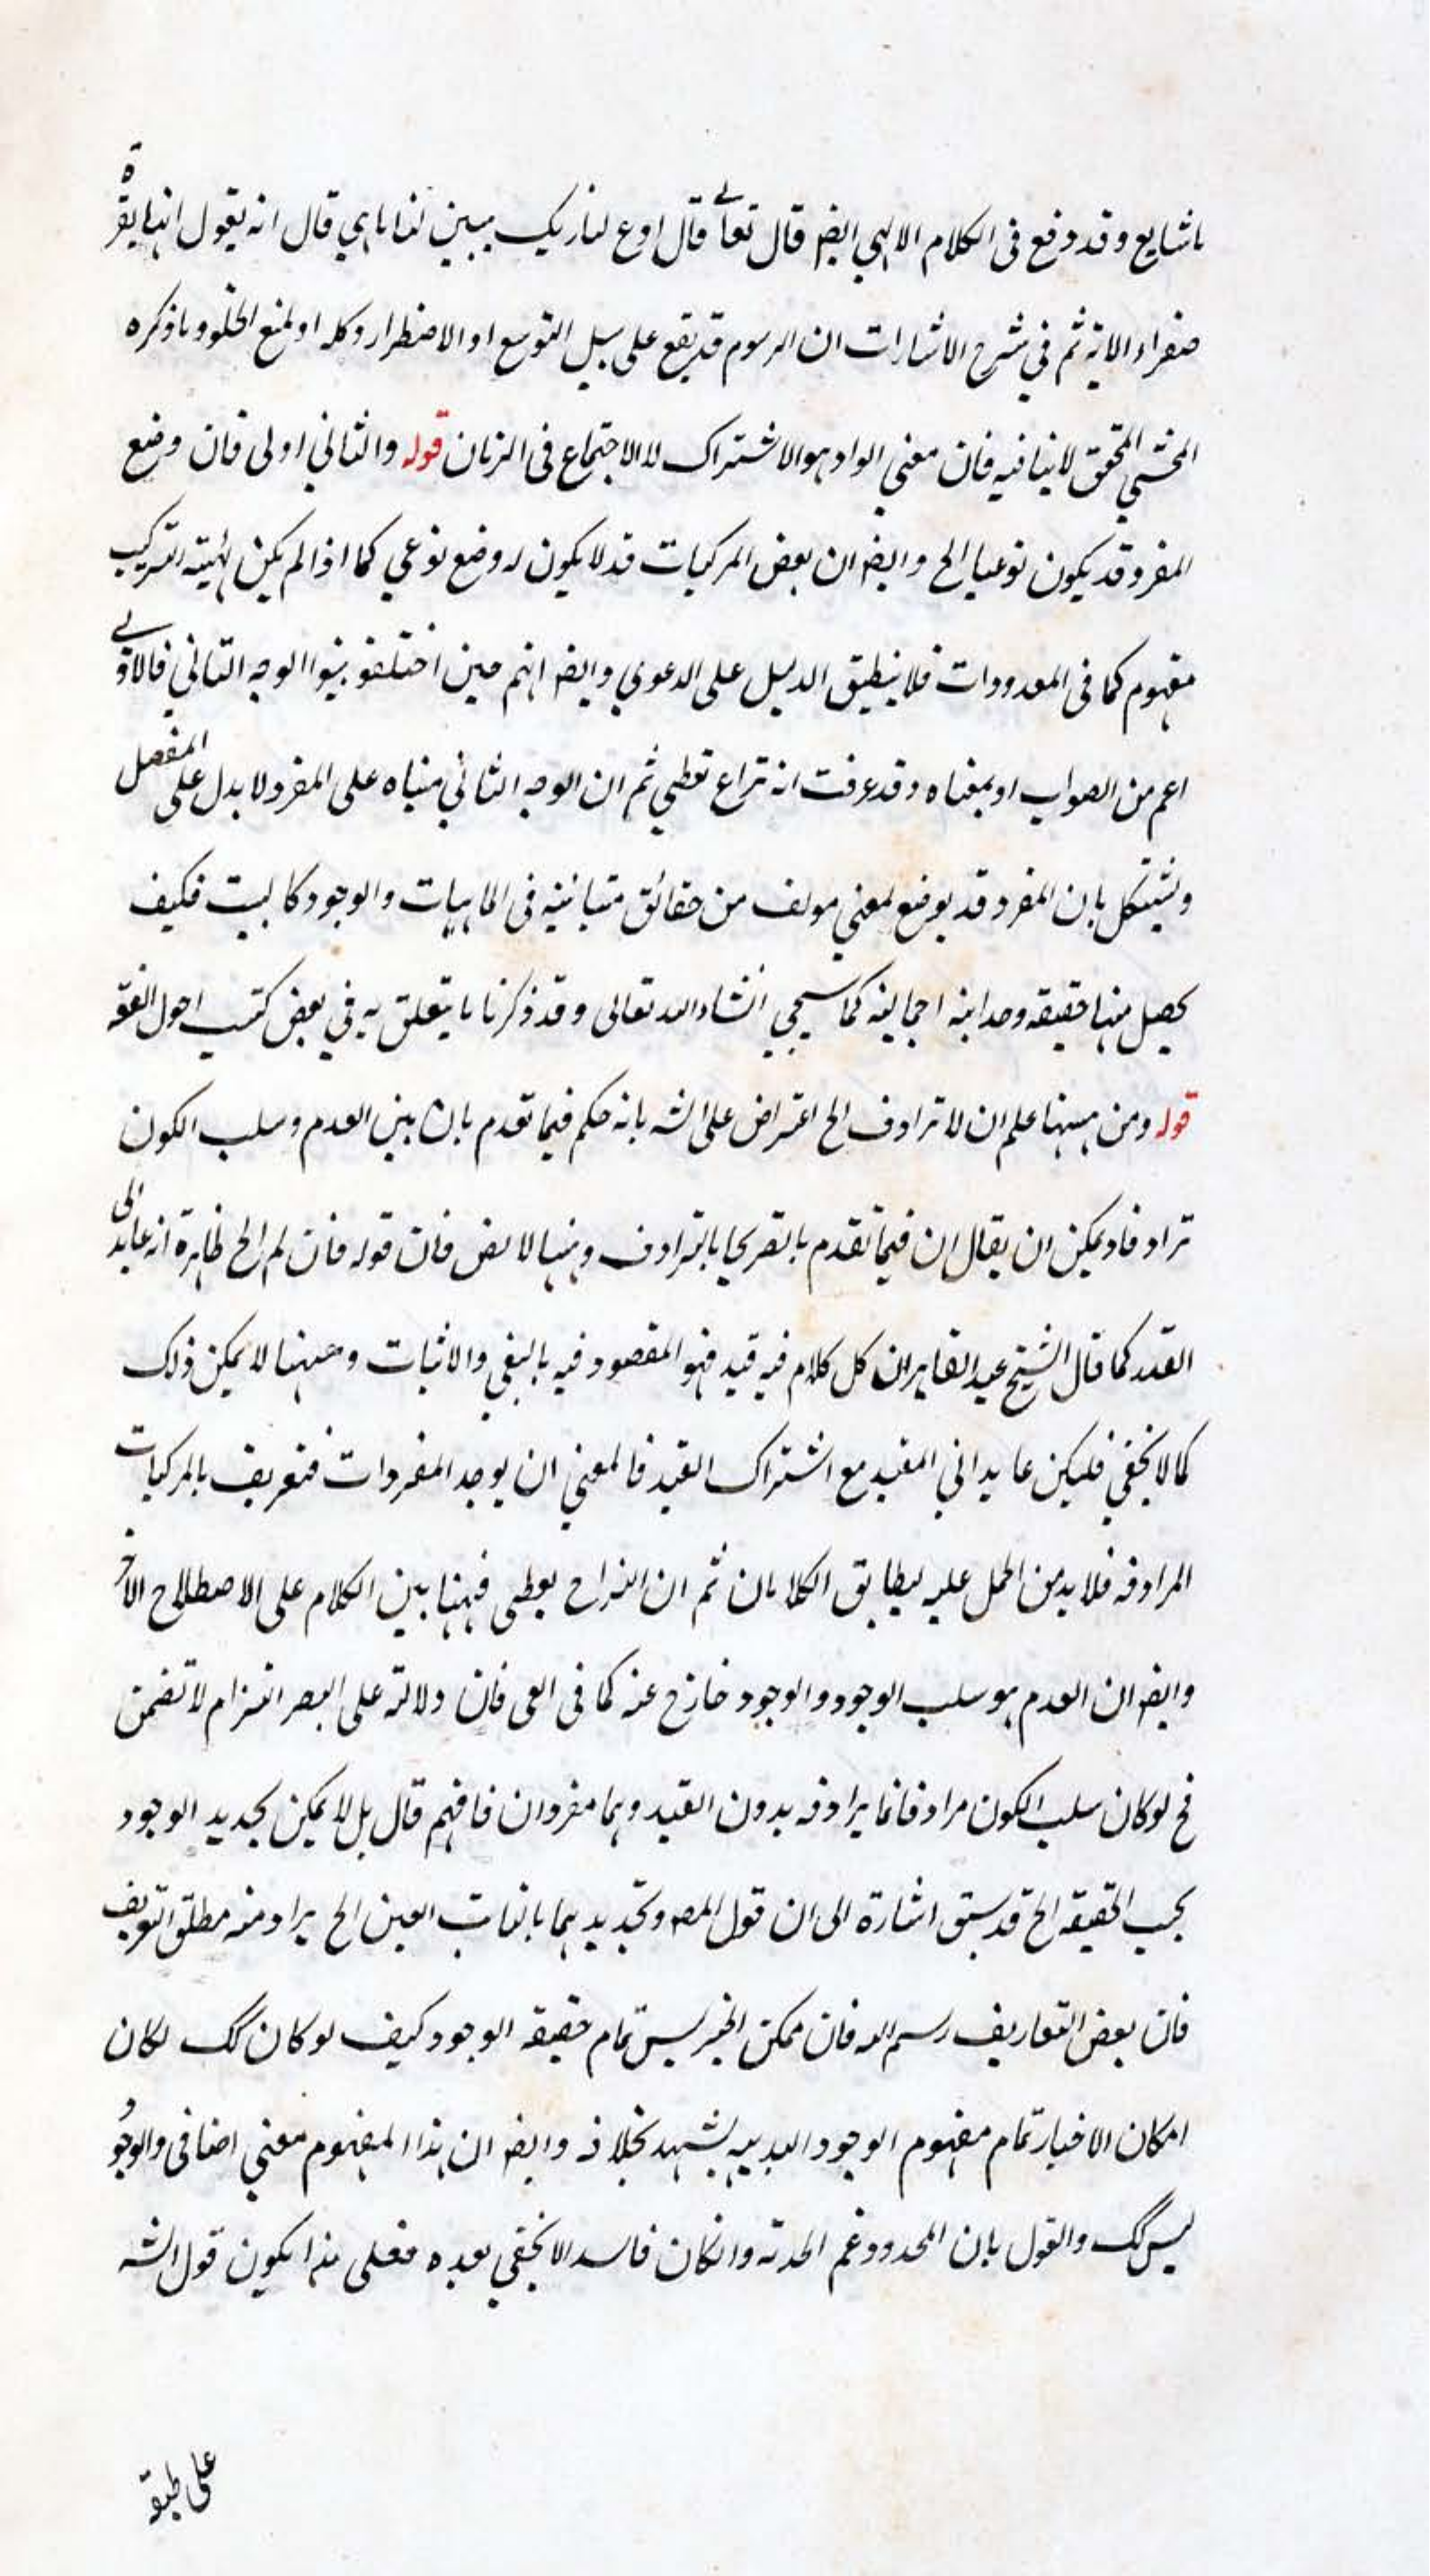 ما شايع وقد وقع فى الكلام الالهي ايضا قال تعالى قال ادع لنا ربك يبين لنا ما هي قال انه يقول انها بقرة
صفراء الاية ثم في شرح الاشارات ان الرسوم قد يقع على سبيل التوسع او الاضطرار وكلمه او لمنع الخلو وما ذكره
المحشي المحقق لا ينافيه فان معني الواو هو الاشتراك لا الاجتماع فى الزمان قوله والثاني اولى فان وضع
المفرد قد يكون نوعيا الخ وايضا ان بعض المركبات قد لا يكون له وضع نوعي كما اذا لم يكن لهيئته التركيب
مفهوم كما فى المعدودات فلا ينطبق الدليل على الدعوي وايضا انهم حين اختلفو بينوا الوجه الثاني فالاولى
اعم من الصواب او بمعناه وقد عرفت انه نزاع لفظي ثم ان الوجه الثاني مبناه على المفرد لا يدل على المفصل
ويشكل بان المفرد قد يوضع لمعني مولف من حقائق متباينه فى الماهيات والوجود كالبيت فكيف
يحصل منها حقيقه وحدانيه اجماليه كما سيجي انشاء الله تعالى وقد ذكرنا ما يتعلق به في بعض كتب اصول الفقه
قوله ومن ههنا علم ان لا ترادف الخ اعتراض على الشه بانه حكم فيما تقدم بان بين العدم وسلب الكون
ترادفا ويمكن ان يقال ان فيما تقدم ما تصريحا بالترادف وههنا لا فان قوله فان لم الخ ظاهره انه عايد الى
القيد كما قال الشيخ عبد القاهر ان كل كلام فيه قيد فهو المقصود فيه بالنفي والاثبات وههنا لا يمكن ذلك
كما لا يخفي فليكن عايدا الي المقيد مع اشتراك القيد فالمعني ان يوجد المفردات فتعريف بالمركبات
المرادفه فلا بد من الحمل عليه ليطابق الكلامان ثم ان النزاع لفظى فههنا بين الكلام على الاصطلاح الاخر
وايضا ان العدم هو سلب الوجود والوجود خارج عنه كما فى العمى فان دلالته على البصر التزام لا تضمن
فح لو كان سلب الكون مرادفا فانما يرادفه بدون القيد وهما مفردان فافهم قال بل لا يمكن تحديد الوجود
بحسب الحقيقه الخ قد سبق اشارة الى ان قول المص وتحديدهما بالثابت العين الخ يراد منه مطلق التعريف
فان بعض التعاريف رسم له فان ممكن الخبر ليس تمام حقيقه الوجود كيف لو كان كك لكان
امكان الاخبار تمام مفهوم الوجود البديهيه يشهد بخلافه وايضا ان هذا المفهوم معني اضافى والوجود
ليس كك والقول بان المحدود عم الحدته وانكان فاسدا لا يخفي بعده فعلى هذا يكون قول الشه
على طبقه